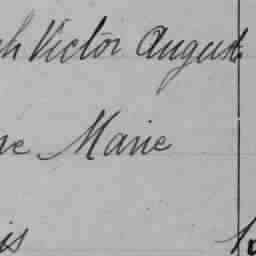 ch Victor August
ne Marie
is